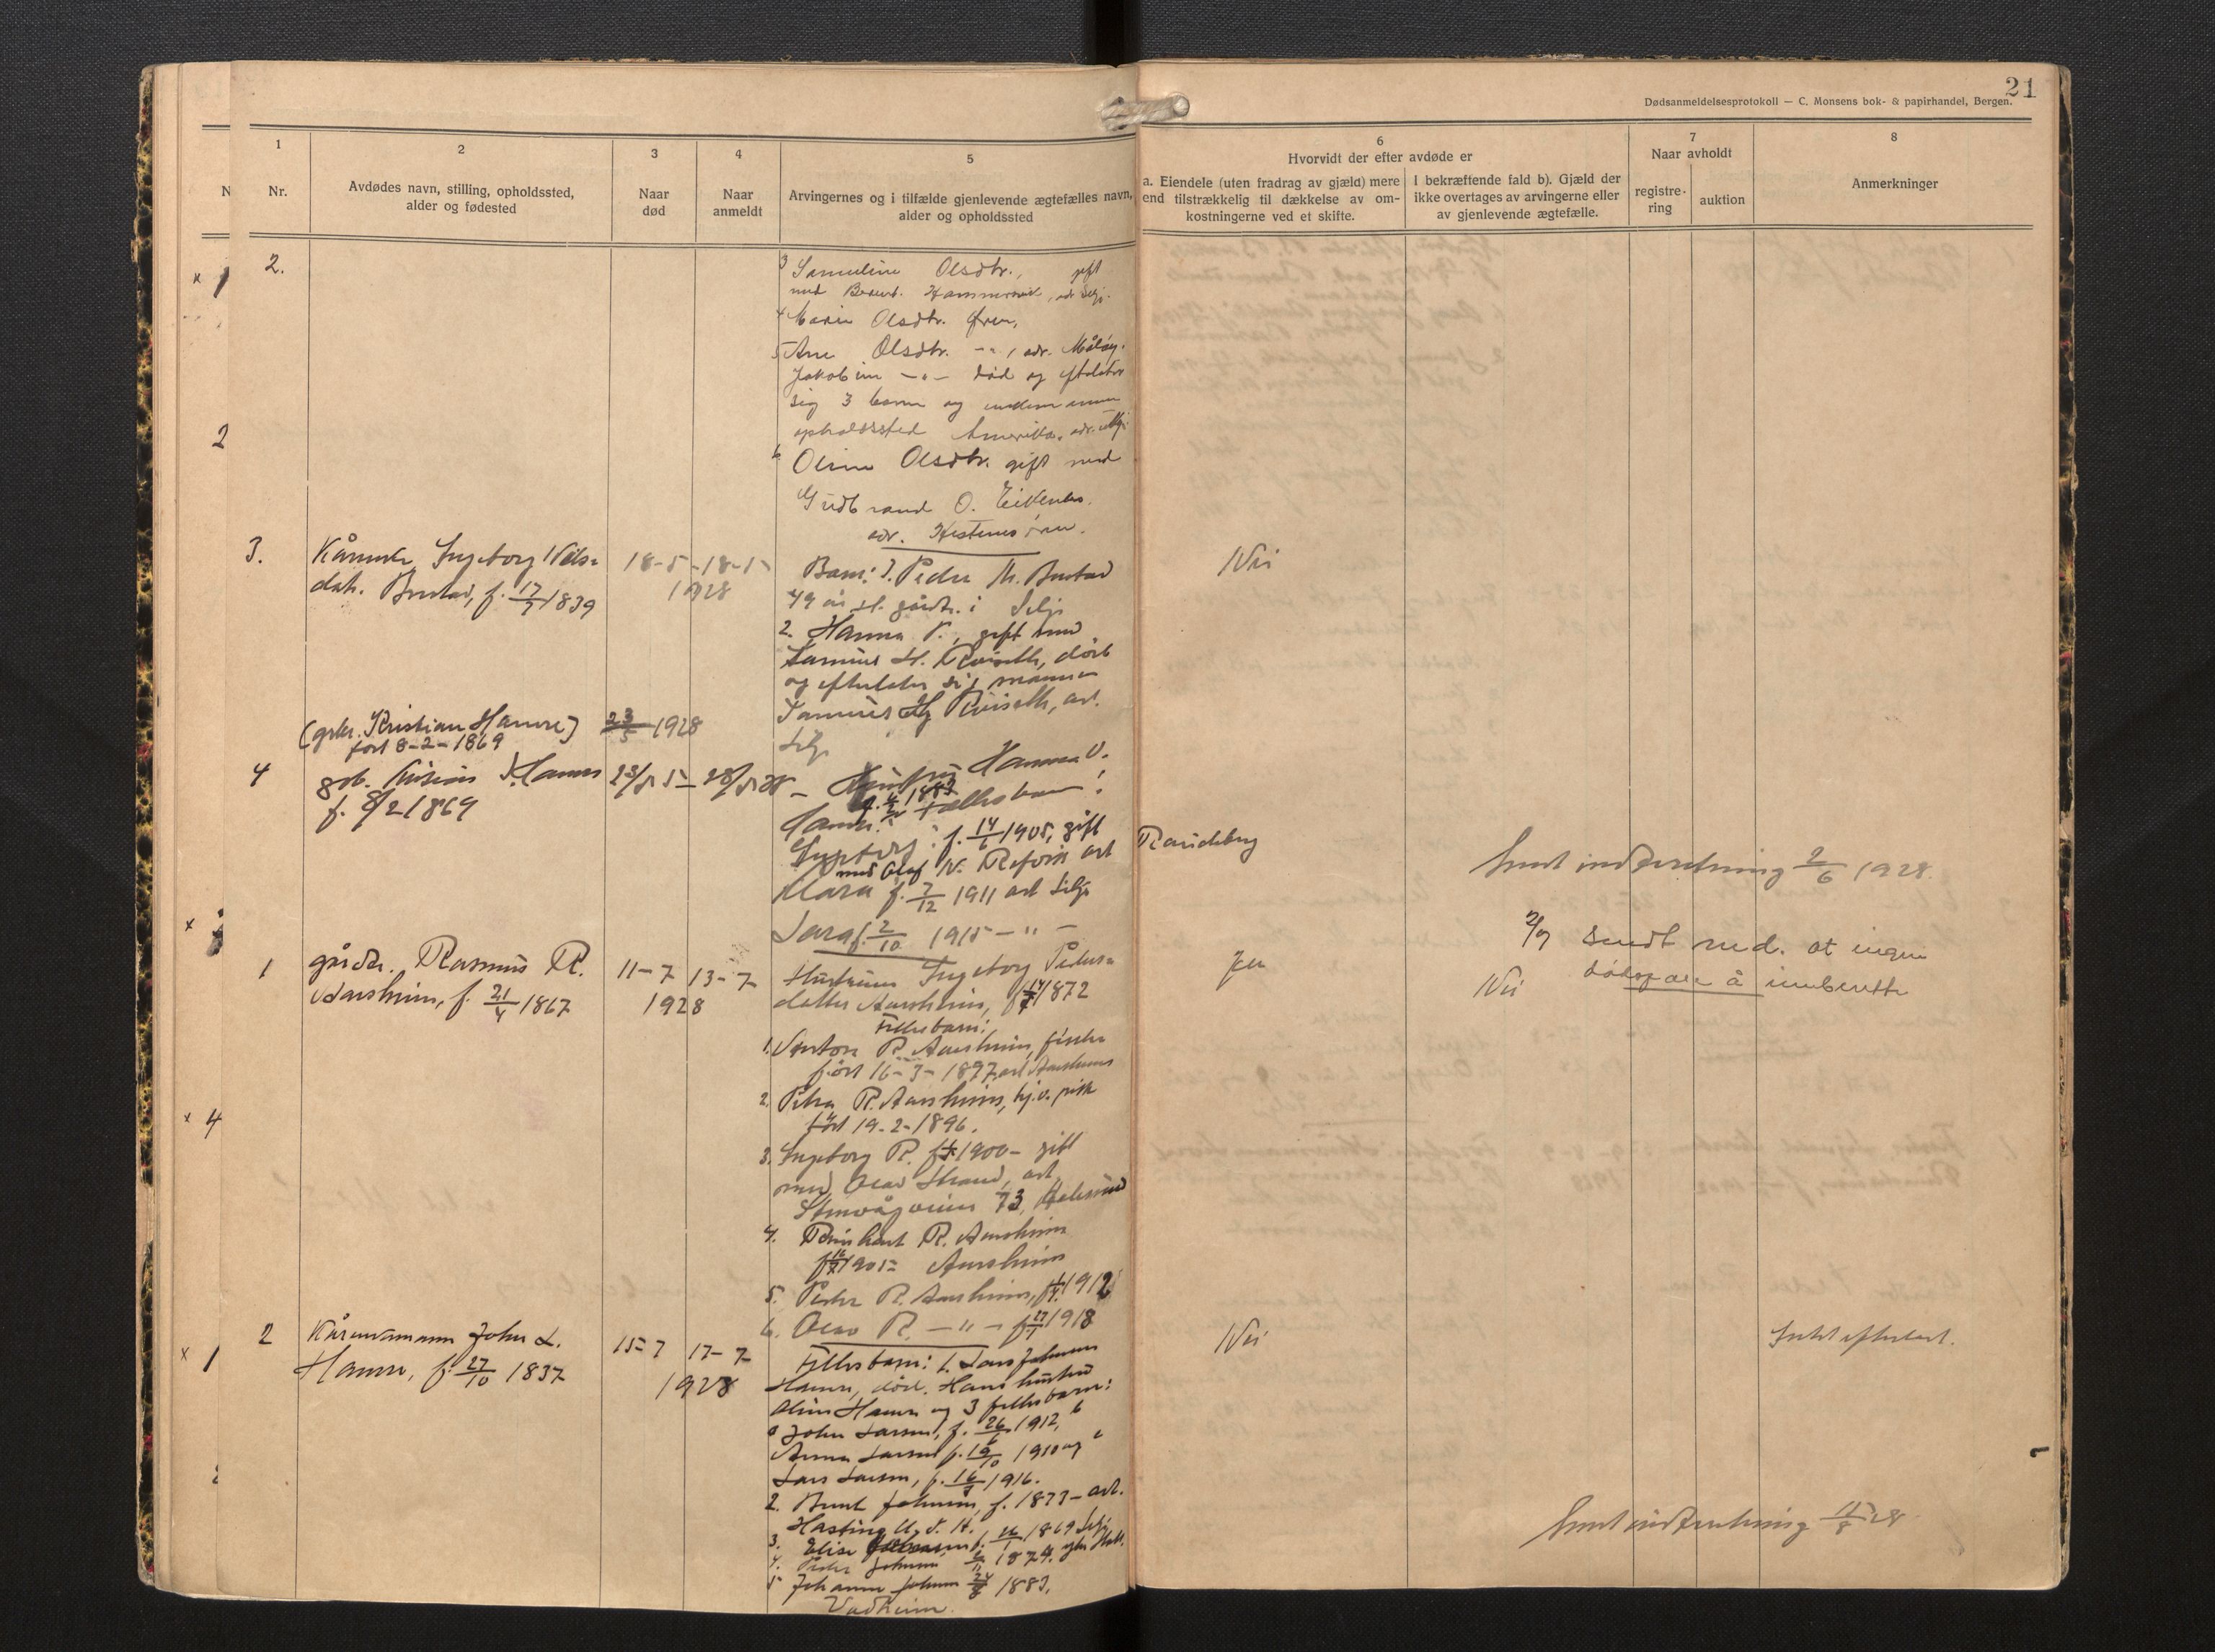 21
Dødsanmeldelsesprotokoll — C. Monsens bok- & papirhandel, Bergen.
1
Nr.
2
Avdødes navn, stilling, opholdssted,
alder og fødested
3
Naar
død
4
Naar
anmeldt
5
Arvingernes og i tilfælde gjenlevende ægtefælles navn,
alder og opholdssted
6
Hvorvidt der efter avdøde er
a. Eiendele (uten fradrag av gjæld) mere
end tilstrækkelig til dækkelse av om-
kostningerne ved et skifte.
I bekræftende fald b). Gjæld der
ikke overtages av arvingerne eller
av gjenlevende ægtefælle.
7
Naar avholdt
registre-
ring
auktion
8
Anmerkninger
2.
3 Samuline Olsdtr., gift
med Hammersvik, adr Selje.
4 Marie Olsdtr.
5 Ane Olsdtr. -"-, adr. Måløy.
Jakobine -"- død og efterlater
sig 3 barn og
opholdssted Amerika.
6 Oline Olsdtr. gift med
Gudbrand O. Eikenes.
adr. Hestenesøren.
3.
Kårenke Ingeborg Nils-
datr. Brustad, f. 17/7 1839
18-5-18-5
1928
Barn: 1. Peder M. Brustad
49 år gårdbr. i Selje
2. Hanna N., gift med
Samuel H. Røiseth, død
og efterlater sig mannen
Samuel Røiseth, adr.
Selje
Nei
(grbr. Kristian Hamre)
født 8-2-1869
23/5 1928
4
grb. Kristian Hamre
f. 8/2 1869
23/5 - 28/5 28
Hustru Hanna O.
Hamre. Fellesbarn:
Ingeborg f. 14/6 1905, gift
med Olaf N. Refvik adr
Raudeberg
Klara f. 7/12 1911 adr Selje
Sara f. 2/10 1915 - " -
Sendt indberetning 2/6 1928.
1
gårdbr. Rasmus R.
Aarsheim, f. 21/4 1867
11-7 13-7-
1928
Hustruen Ingeborg Peders-
datter Aarsheim, f 1872
Fellesbarn:
1. Anton R. Aarsheim, fisker
født 16-3-1897, adr Aarsheim
2. Petra R. Aarsheim, hj.v. pike
født 19-2-1896.
3. Ingeborg R. 1900- gift
med Olav Strand, adr.
Stenvågveien 73, Aalesund
4. Reinhart R. Aarsheim
1905 Aarsheim
5. Peder R. Aarsheim, 1912
6. Olav R. - " - 1918
Ja
Nei
2/7 Sendt med. at ingen
dødsfald å innberette
2
Kårenkemann John L.
Hamre, f. 27/10 1837
15-7 17-7-
1928
Fellesbarn: 1. Lars Johnsen
Hamre, død. Hans hustru
Oline Hamre og 3 fellesbarn:
John Larsen, f. 26/6 1912,
Anna Larsen f. 1910 og
Lars Larsen, f. 1916.
2. Bernt Johnsen, f. 1873 - adr.
Hasting U. S. A.
3. Elise f. 26/1 1869 Selje
4. Peder Johnsen 1874.
5 Johanne Johnsen 24/8 1883,
Vadheim.
Nei
Intet efterlatt.
Sendt indberetning 28
x 1
2
x
x 4
x 1